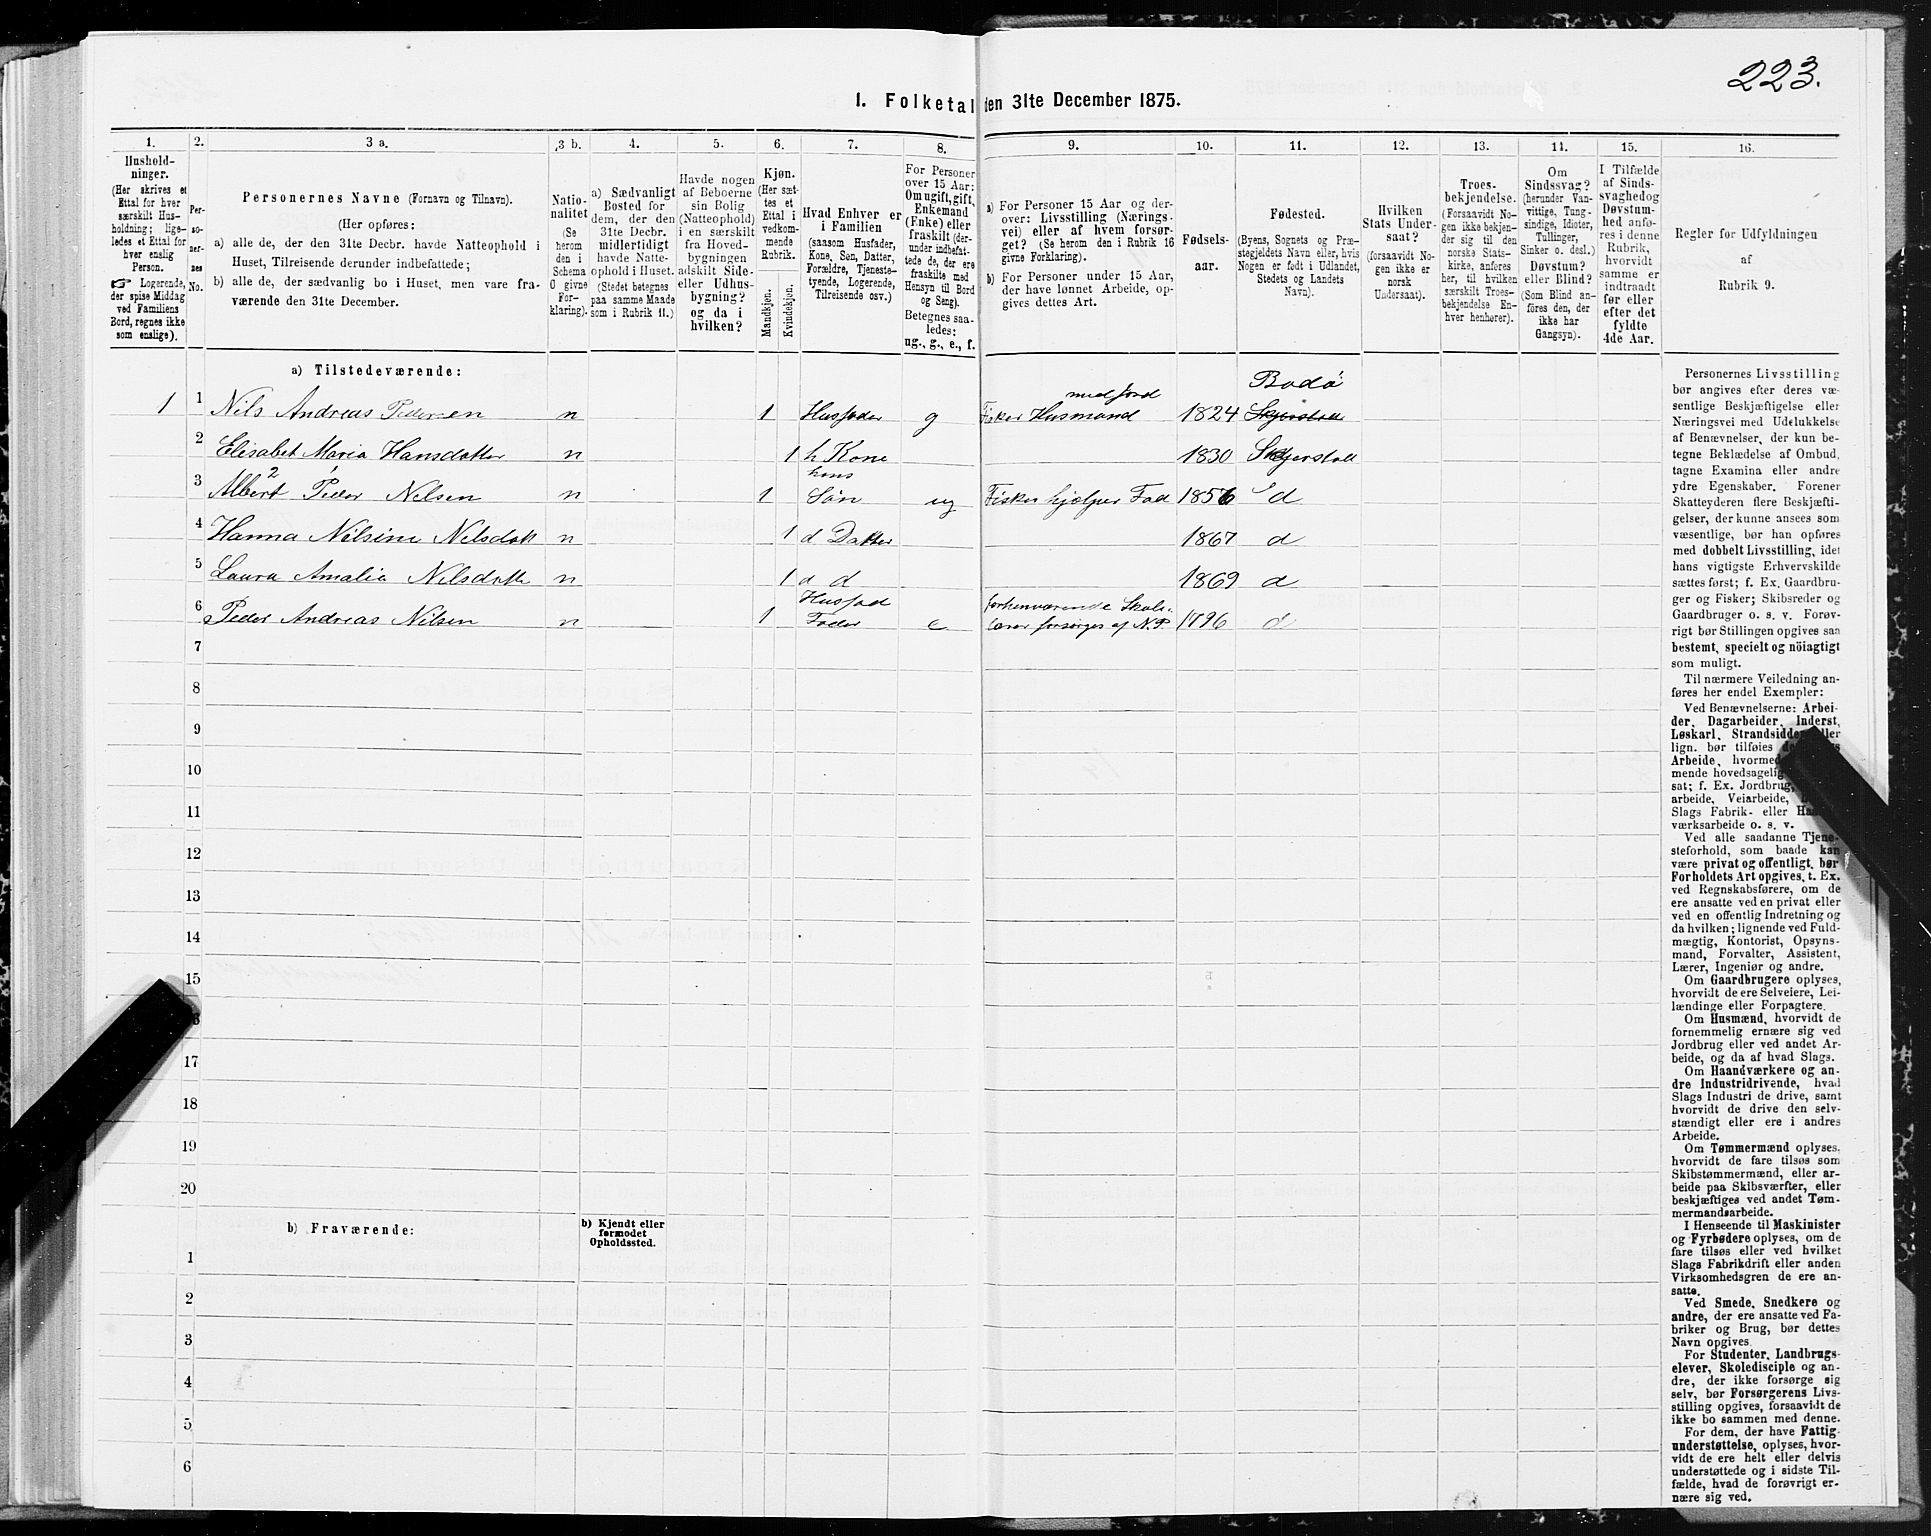 223.
I. Folketal den 31te December 1875.
1. 2. 3 a. 3 b. 4. 5. 6. 7. 8. 9. 10. 11. 12. 13. 14. 15. 16.
Hushold-
ninger.
(Her skrives et
Ettal for hver
særskilt Hus-
holdning; lige-
ledes et Ettal for
hver enslig
Person.
☞ Logerende,
der spise Middag
ved Familiens
Bord, regnes ikke
som enslige).
Per-
so-
ner-
nes
No.
Personernes Navne (Fornavn og Tilnavn).
(Her opføres:
a) alle de, der den 31te Decbr. havde Natteophold i
Huset, Tilreisende derunder indbefattede;
b) alle de, der sædvanlig bo i Huset, men vare fra-
værende den 31te December.
Natio-
nalitet
(Se
herom
den i
Schema
O givne
For-
klaring).
a) Sædvanligt
Bosted for
dem, der den
31te Decbr.
midlertidigt
havde Natte-
ophold i Huset.
(Stedet betegnes
paa samme Maade
som i Rubrik 11.)
Havde nogen
af Beboerne
sin Bolig
(Natteophold)
i en særskilt
fra Hoved-
bygningen
adskilt Side-
eller Udhus-
bygning?
og da i
hvilken?
Kjøn.
(Her sæt-
tes et
Ettal i
vedkom-
mende
Rubrik.
Mandkjøn.
Kvindekjøn.
Hvad Enhver er
i Familien
(saasom Husfader,
Kone, Søn, Datter,
Forældre, Tjeneste-
tyende, Logerende,
Tilreisende osv.)
For Personer
over 15 Aar:
Om ugift, gift,
Enkemand
(Enke) eller
fraskilt (der-
under indbefat-
tede de, der ere
fraskilte med
Hensyn til Bord
og Seng).
Betegnes saa-
ledes:
ug., g., e., f.
a) For Personer 15 Aar og der-
over: Livsstilling (Nærings-
vei) eller af hvem forsør-
get? (Se herom den i Rubrik 16
givne Forklaring).
b) For Personer under 15 Aar,
der have lønnet Arbeide, op-
gives dettes Art.
Fødsels-
aar.
Fødested.
(Byens, Sognets og Præ-
stegjeldets Navn eller, hvis
Nogen er født i Udlandet,
Stedets og Landets
Navn).
Hvilken
Stats Under-
saat?
(forsaavidt No-
gen ikke er
norsk
Undersaat).
Troes-
bekjendelse.
(Forsaavidt No-
gen ikke bekjen-
der sig til den
norske Stats-
kirke, anføres
her, til hvilken
særskilt Troes-
bekjendelse En-
hver henhører).
Om
Sindssvag?
(herunder Van-
vittige, Tung-
sindige, Idioter,
Tullinger,
Sinker o. desl.)
Døvstum?
eller Blind?
(Som Blind an-
føres den, der
ikke har
Gangsyn).
I Tilfælde
af Sinds-
svaghed og
Døvstum-
hed anfø-
res i denne
Rubrik,
hvorvidt
samme er
indtraadt
før eller
efter det
fyldte
4de Aar.
Regler for Udfyldningen
af
Rubrik 9.
a) Tilstedeværende:
1 1 Nils Andreas Pedersen n 1 Husfader g Fisker Husmand med jord 1824 Skjerstad Bodø
2 Elisabet Maria Hansdatter n 1 h Kone 1830 Skjerstad
3 Albert Peder Nilsen n 1 hans Søn ug Fisker hjælper Fad 1856 d
4 Hanna Nilsine Nilsdatt n 1 d Datter 1867 d
5 Laura Amalia Nilsdatte n 1 d d 1869 d
6 Peder Andreas Nilsen n 1 Husfad Fader e forhenværende Skole- lærer forsørges af N.P. 1796 d
7
8
9
10
11
12
13
14
15
17
18
19
20
b) Fraværende:
b) Kjendt eller
formodet
Opholdssted.
1
2
3
4
5
6
Personernes Livsstilling
bør angives efter deres væ-
sentlige Beskjæftigelse eller
Næringsvei med Udelukkelse
af Benævnelser, der kun be-
tegne Beklædelse af Ombud,
tagne Examina eller andre
ydre Egenskaber. Forener
Skatteyderen flere Beskjæfti-
gelser, der kunne ansees som
væsentlige, bør han opføres
med dobbelt Livsstilling, idet
hans vigtigste Erhvervskilde
sættes først; f. Ex. Gaardbru-
ger og Fisker; Skibsreder og
Gaardbruger o. s. v. Forøv-
rigt bør Stillingen opgives saa
bestemt, specielt og nöiagtigt
som muligt.
Til nærmere Veiledning an-
føres her endel Exempler:
Ved Benævnelserne: Arbei-
der, Dagarbeider, Inderst,
Løskarl, Strandsidder eller
lign. bør tilføies
Arbeide, hvormed
mende hovedsagelig
sat; f. Ex. Jordbrug,
arbeide, Veiarbeide,
Slags Fabrik- eller
værksarbeide o. s. v.
Ved alle saadanne Tjene-
steforhold, som baade kan
være privat og offentligt, bør
Forholdets Art opgives, t. Ex.
ved Regnskabsførere, om de
ere ansatte ved en privat eller
ved en offentlig Indretning og
da hvilken; lignende ved Fuld-
mægtig, Kontorist, Opsyns-
mand, Forvalter, Assistent,
Lærer, Ingeniør og andre.
Om Gaardbrugere oplyses,
hvorvidt de ere Selveiere, Lei-
lændinge eller Forpagtere.
Om Husmænd, hvorvidt de
fornemmelig ernære sig ved
Jordbrug eller ved andet Ar-
beide, og da af hvad Slags.
Om Haandværkere og an-
dre Industridrivende, hvad
Slags Industri de drive, samt
hvorvidt de drive den selv-
stændigt eller ere i andres
Arbeide.
Om Tømmermænd oplyses,
hvorvidt de fare tilsøs som
Skibstømmermænd, eller ar-
beide paa Skibsværfter, eller
beskjæftiges ved andet Tøm-
mermandsarbeide.
I Henseende til Maskinister
og Fyrbødere oplyses, om de
fare tilsøs eller ved hvilket
Slags Fabrikdrift eller anden
Virksomhedsgren de ere an-
satte.
Ved Smede, Snedkere og
andre, der ere ansatte ved Fa-
briker og Brug, bør dettes
Navn opgives.
For Studenter, Landbrugs-
elever, Skoledisciple og an-
dre, der ikke forsørge sig
selv, bør Forsørgerens Livs-
stilling opgives, forsaavidt de
ikke bo sammen med denne.
For dem, der have Fattig-
understøttelse, oplyses, hvor-
vidt de ere helt eller delvis
understøttede og i sidste Til-
fælde, hvad de forøvrigt er-
nære sig ved.